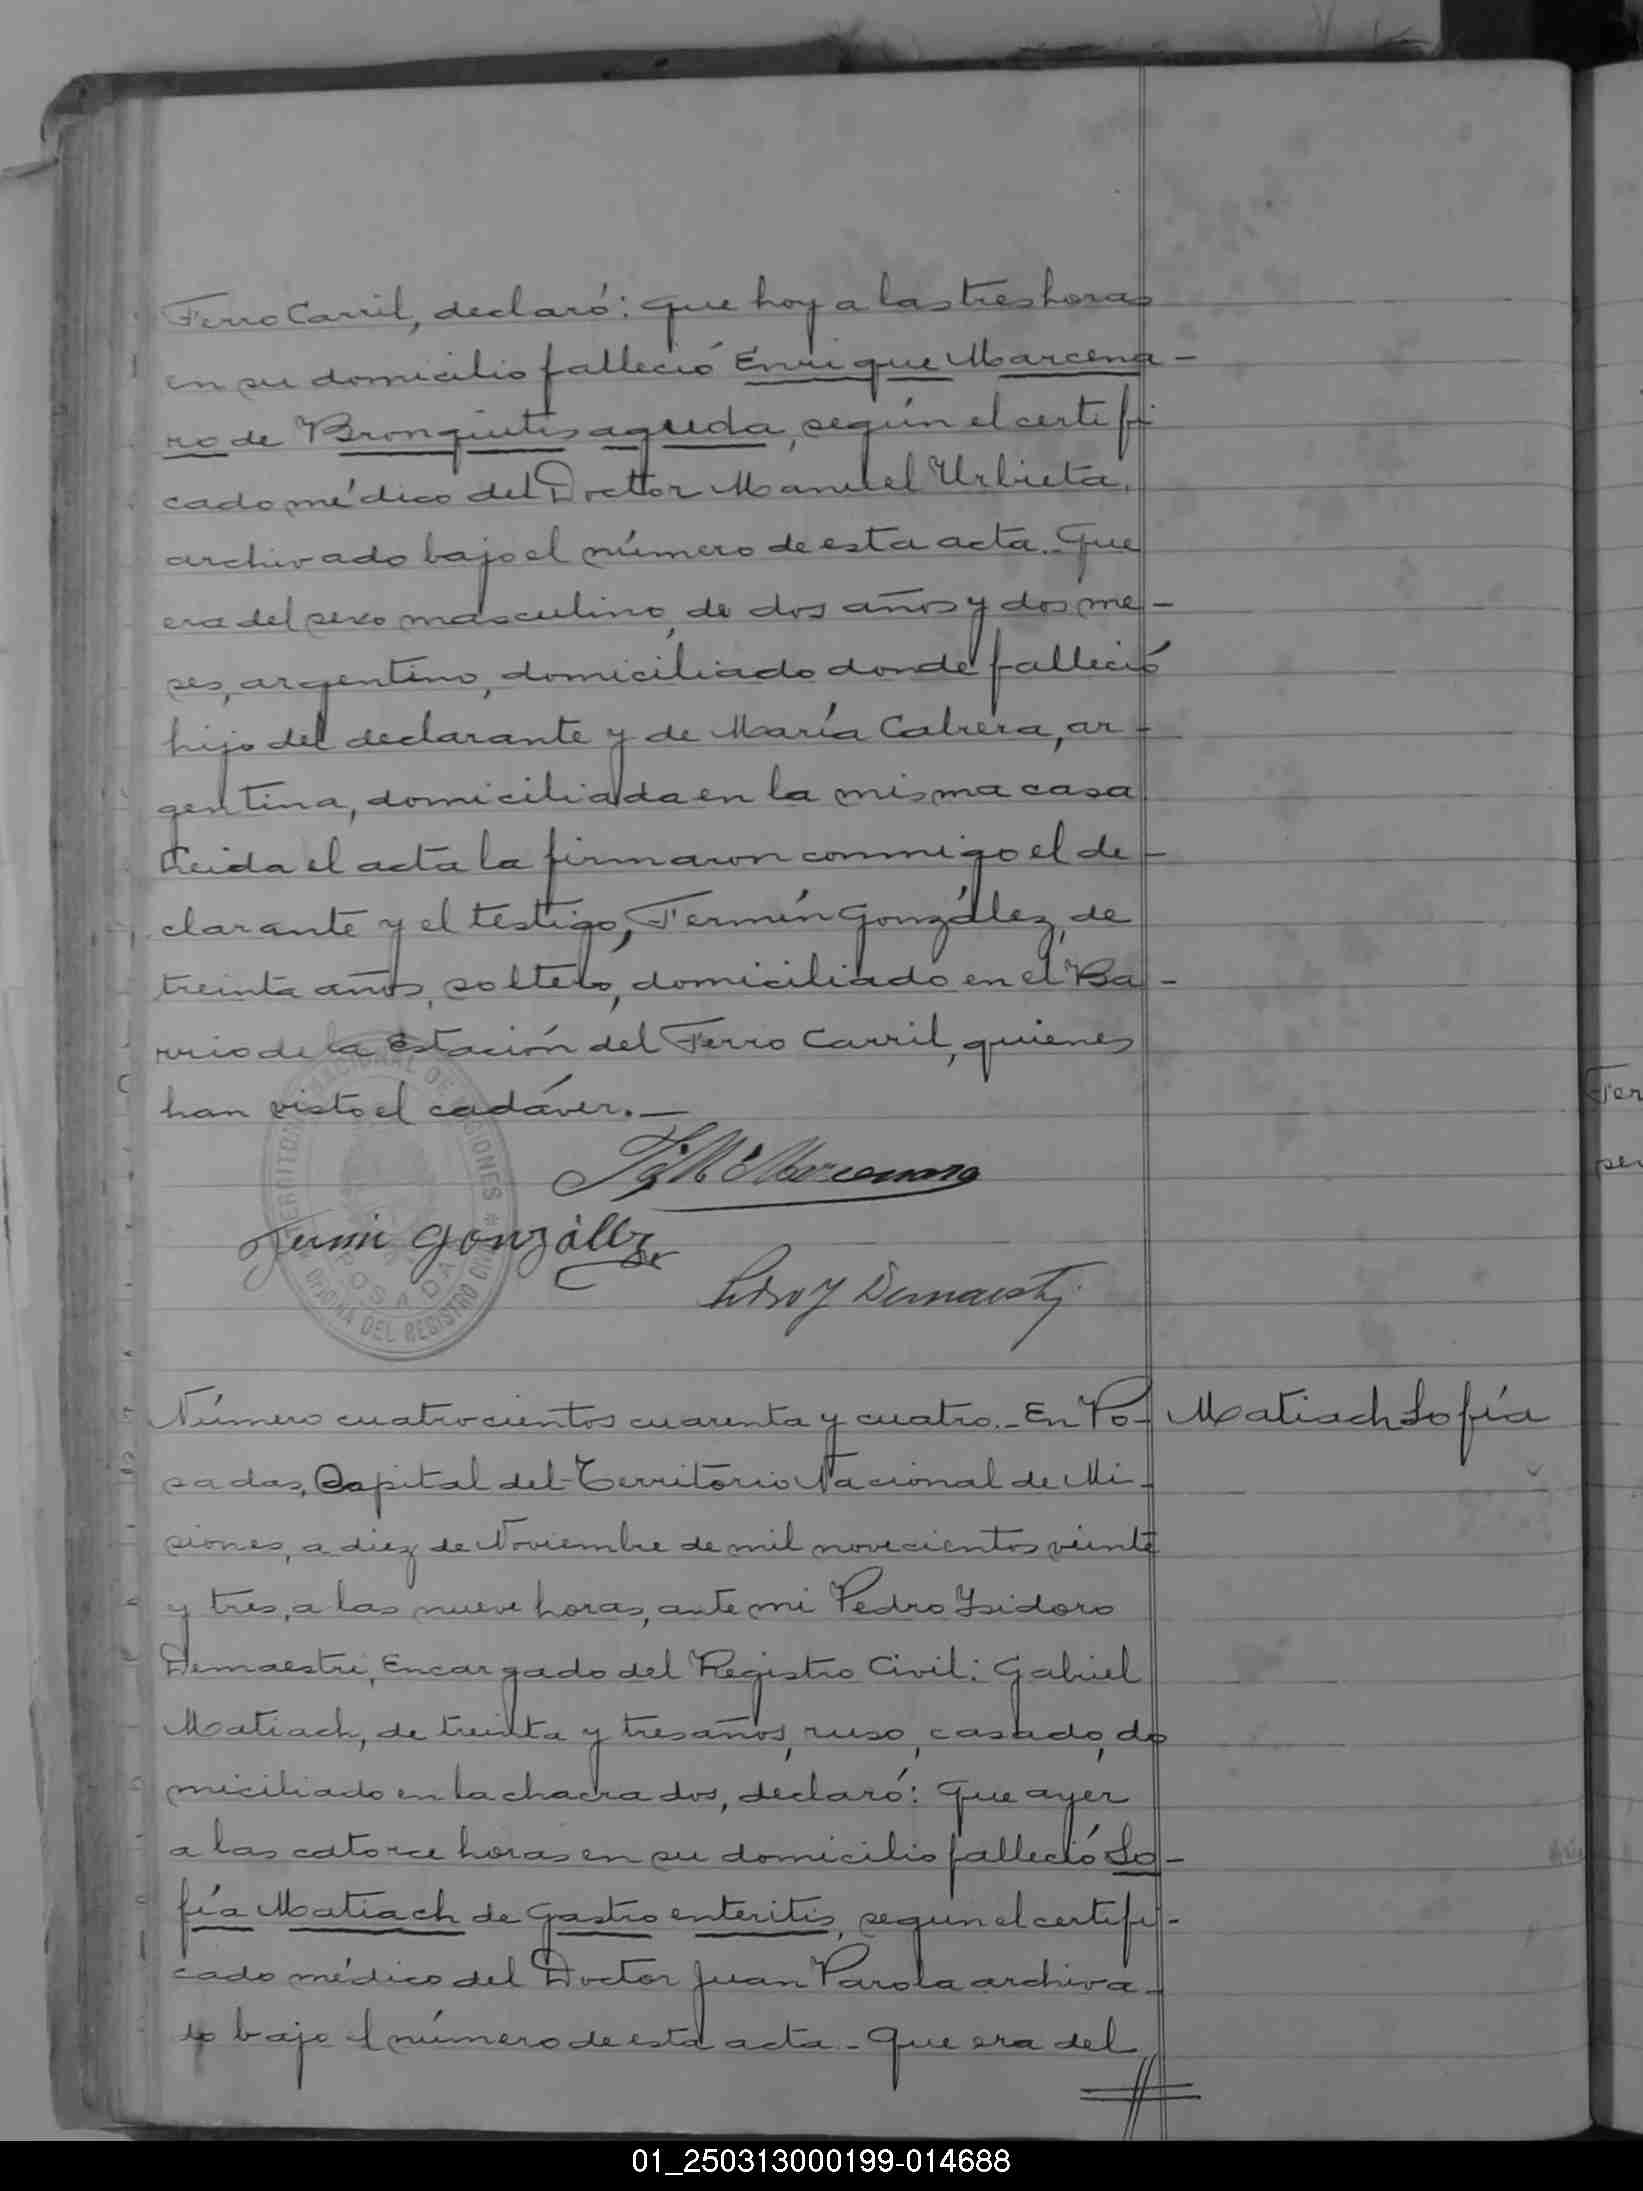 Ferro Carril, declaró: Que hoy a las tres horas
en su domicilio falleció Enrique Marcena-
ro de Bronquitis aguda, según el certifi
cado médico del Doctor Manuel Urbieta,
archivado bajo el número de esta acta. Que
era del sexo masculino, de dos años y dos me-
ses, argentino, domiciliado donde falleció
hijo del declarante y de María Cabrera, ar-
gentina, domiciliada en la misma casa
Leida el acta la firmaron conmigo el de-
clarante y el testigo, Fermín González, de
treinta años, soltero, domiciliado en el Ba-
rrio de la Estación del Ferro Carril, quienes
han visto el cadáver.-
Marcenaro
Fermin González
Pedro Y Demaestri
TERRITORIO NACIONAL DE MISIONES * OFICINA DEL REGISTRO CIVIL
POSADAS
Número cuatrocientos cuarenta y cuatro.- En Po- Matiach Sofía
sadas, Capital del Territorio Nacional de Mi-
siones, a diez de Noviembre de mil novecientos veinte
y tres, a las nueve horas, ante mi Pedro Ysidoro
Demaestri, Encargado del Registro Civil: Gabriel
Matiach, de treinta y tres años, ruso, casado, do
miciliado en la chacra dos, declaró: Que ayer
a las catorce horas en su domicilio falleció So-
fía Matiach de Gastro enteritis, segun el certifi-
cado médico del Doctor Juan Parola archiva-
do bajo el número de esta acta - Que era del
Fer
01_250313000199-014688